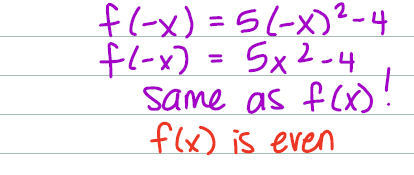 f(-x) = 5(-x)²-4
f(-x) = 5x²-4
same as f(x)!
f(x) is even